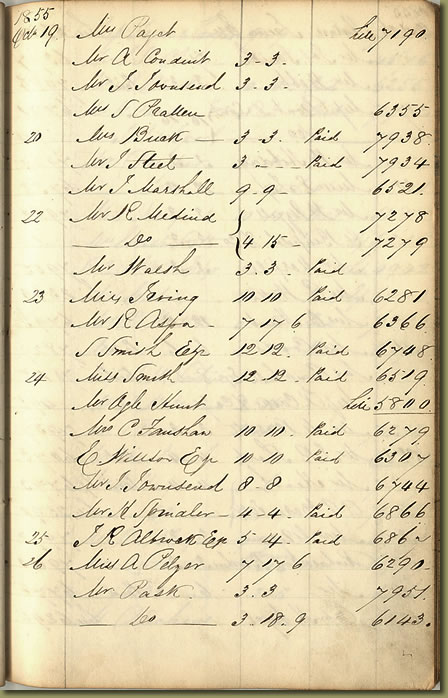 1855
Octr 19. Mrs Paget late 7190
Mr A Conduit 3-3-
Mr J. Townsend 3-3-
Mrs S Pratten 6355
20 Mrs Buck 3-3- Paid 7938
Mr J Steet 3 - - Paid 7934
Mr J Marshall 9-9- 6521
22 Mr R Medind 7278
Do 4 15 - 7279
Mr Walsh 3.3. Paid
23 Miss Irving 10 10 Paid 6281
Mr R Aspa 7-17 6 6366
S Smith Esq 12 12. Paid 6748
24 Miss Smith 12 12. Paid 6519
Mr Ogle Hunt late 5800
Mrs C 10 10 - Paid 6279
E Willson Esq 10 10 Paid 6307
Mr J Townsend 8-8 6744
Mr R 4-4- Paid 6866
25 J R Esq 5-14. Paid
26 Miss A Pelzer 7 17 6 6290
Mr Pask. 3.3 7951
Do 3-18-9 6143.